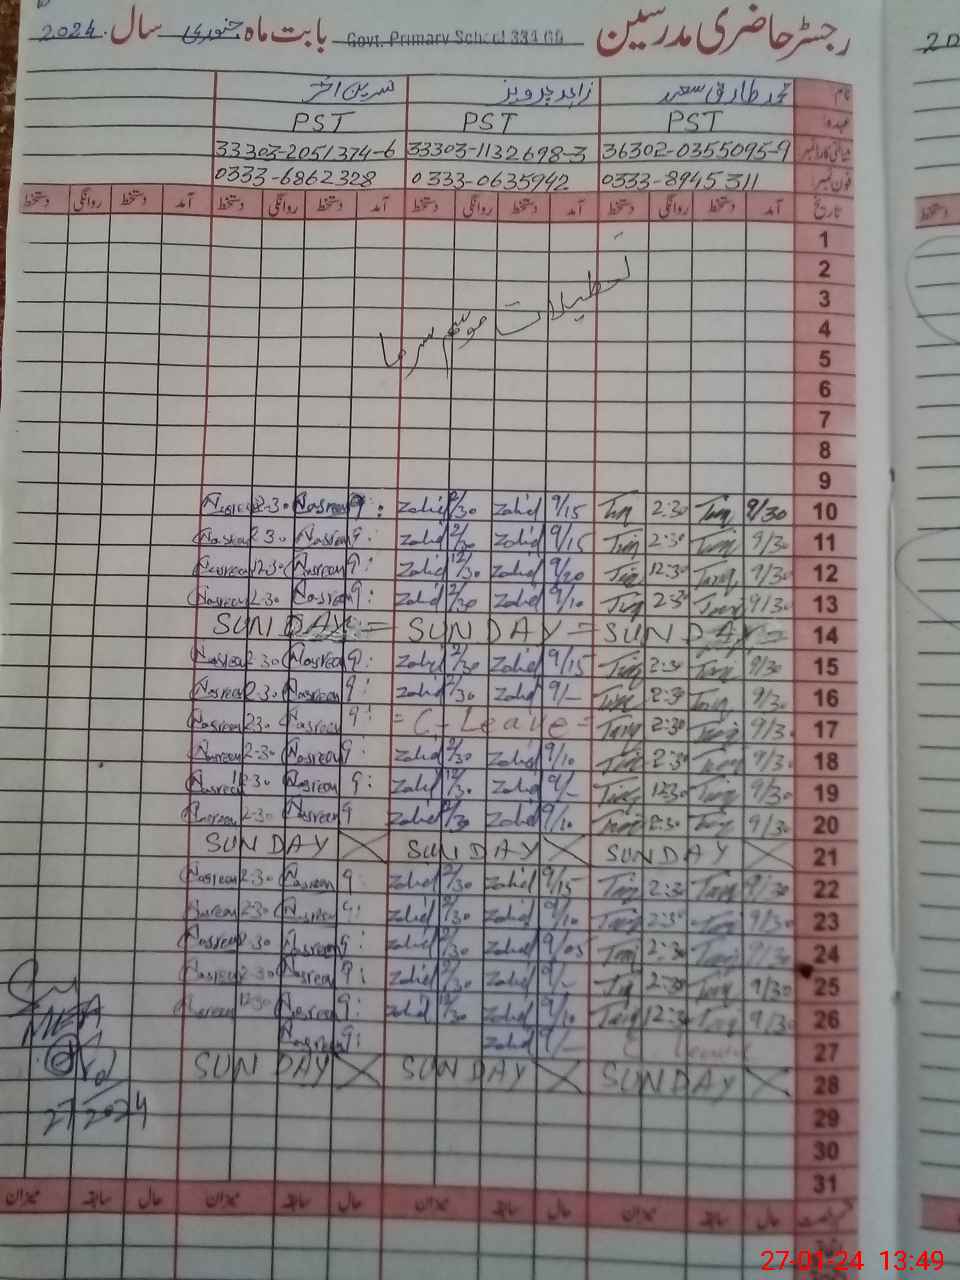 رجسٹر حاضری مدرسین Govt. Primary School 334 GB بابت ماہ جنوری سال 2024
نام محمد طارق سعید زاہد پرویز نسرین اختر
عہدہ PST PST PST
شناختی کارڈ نمبر 36302-0355095-9 33303-1132698-3 33303-2051374-6
فون نمبر 0333-8945311 0333-0635942 0333-6862328
تاریخ آمد دستخط روانگی دستخط آمد دستخط روانگی دستخط آمد دستخط روانگی دستخط آمد دستخط روانگی دستخط
1
2
3
4
5
6
7
8
9
تعطیلات موسم سرما
10 9/30 Tariq 2:30 Tariq 9/15 Zahid 2/30 Zahid 9: Nasreen 2-30 Nasreen
11 9/30 Tariq 2:30 Tariq 9/15 Zahid 2/30 Zahid 9: Nasreen 2-30 Nasreen
12 9/30 Tariq 12:30 Tariq 9/20 Zahid 12/30 Zahid 9: Nasreen 12-30 Nasreen
13 9/30 Tariq 2:30 Tariq 9/10 Zahid 2/30 Zahid 9: Nasreen 2-30 Nasreen
14 SUNDAY = SUNDAY = SUNDAY =
15 9/30 Tariq 2:30 Tariq 9/15 Zahid 2/30 Zahid 9: Nasreen 2-30 Nasreen
16 9/30 Tariq 2:30 Tariq 9/- Zahid 2/30 Zahid 9: Nasreen 2-30 Nasreen
17 9/30 Tariq 2:30 Tariq = C. Leave = 9: Nasreen 2-30 Nasreen
18 9/30 Tariq 2:30 Tariq 9/10 Zahid 2/30 Zahid 9: Nasreen 2-30 Nasreen
19 9/30 Tariq 12:30 Tariq 9/- Zahid 12/30 Zahid 9: Nasreen 12-30 Nasreen
20 9/30 Tariq 2:30 Tariq 9/10 Zahid 2/30 Zahid 9 Nasreen 2-30 Nasreen
21 SUNDAY SUNDAY SUNDAY
22 9/30 Tariq 2:30 Tariq 9/15 Zahid 2/30 Zahid 9: Nasreen 2-30 Nasreen
23 9/30 Tariq 2:30 Tariq 9/10 Zahid 2/30 Zahid 9: Nasreen 2-30 Nasreen
24 9/30 Tariq 2:30 Tariq 9/05 Zahid 2/30 Zahid 9: Nasreen 2-30 Nasreen
25 9/30 Tariq 2:30 Tariq 9/- Zahid 2/30 Zahid 9: Nasreen 2-30 Nasreen
26 9/30 Tariq 12:30 Tariq 9/10 Zahid 12/30 Zahid 9: Nasreen 12-30 Nasreen
27 C. Leave 9/- Zahid 9: Nasreen
28 SUNDAY SUNDAY SUNDAY
MEA
27/2024
29
30
31
حال سابقہ میزان حال سابقہ میزان حال سابقہ میزان حال سابقہ میزان
دستخط
27-01-24 13:49